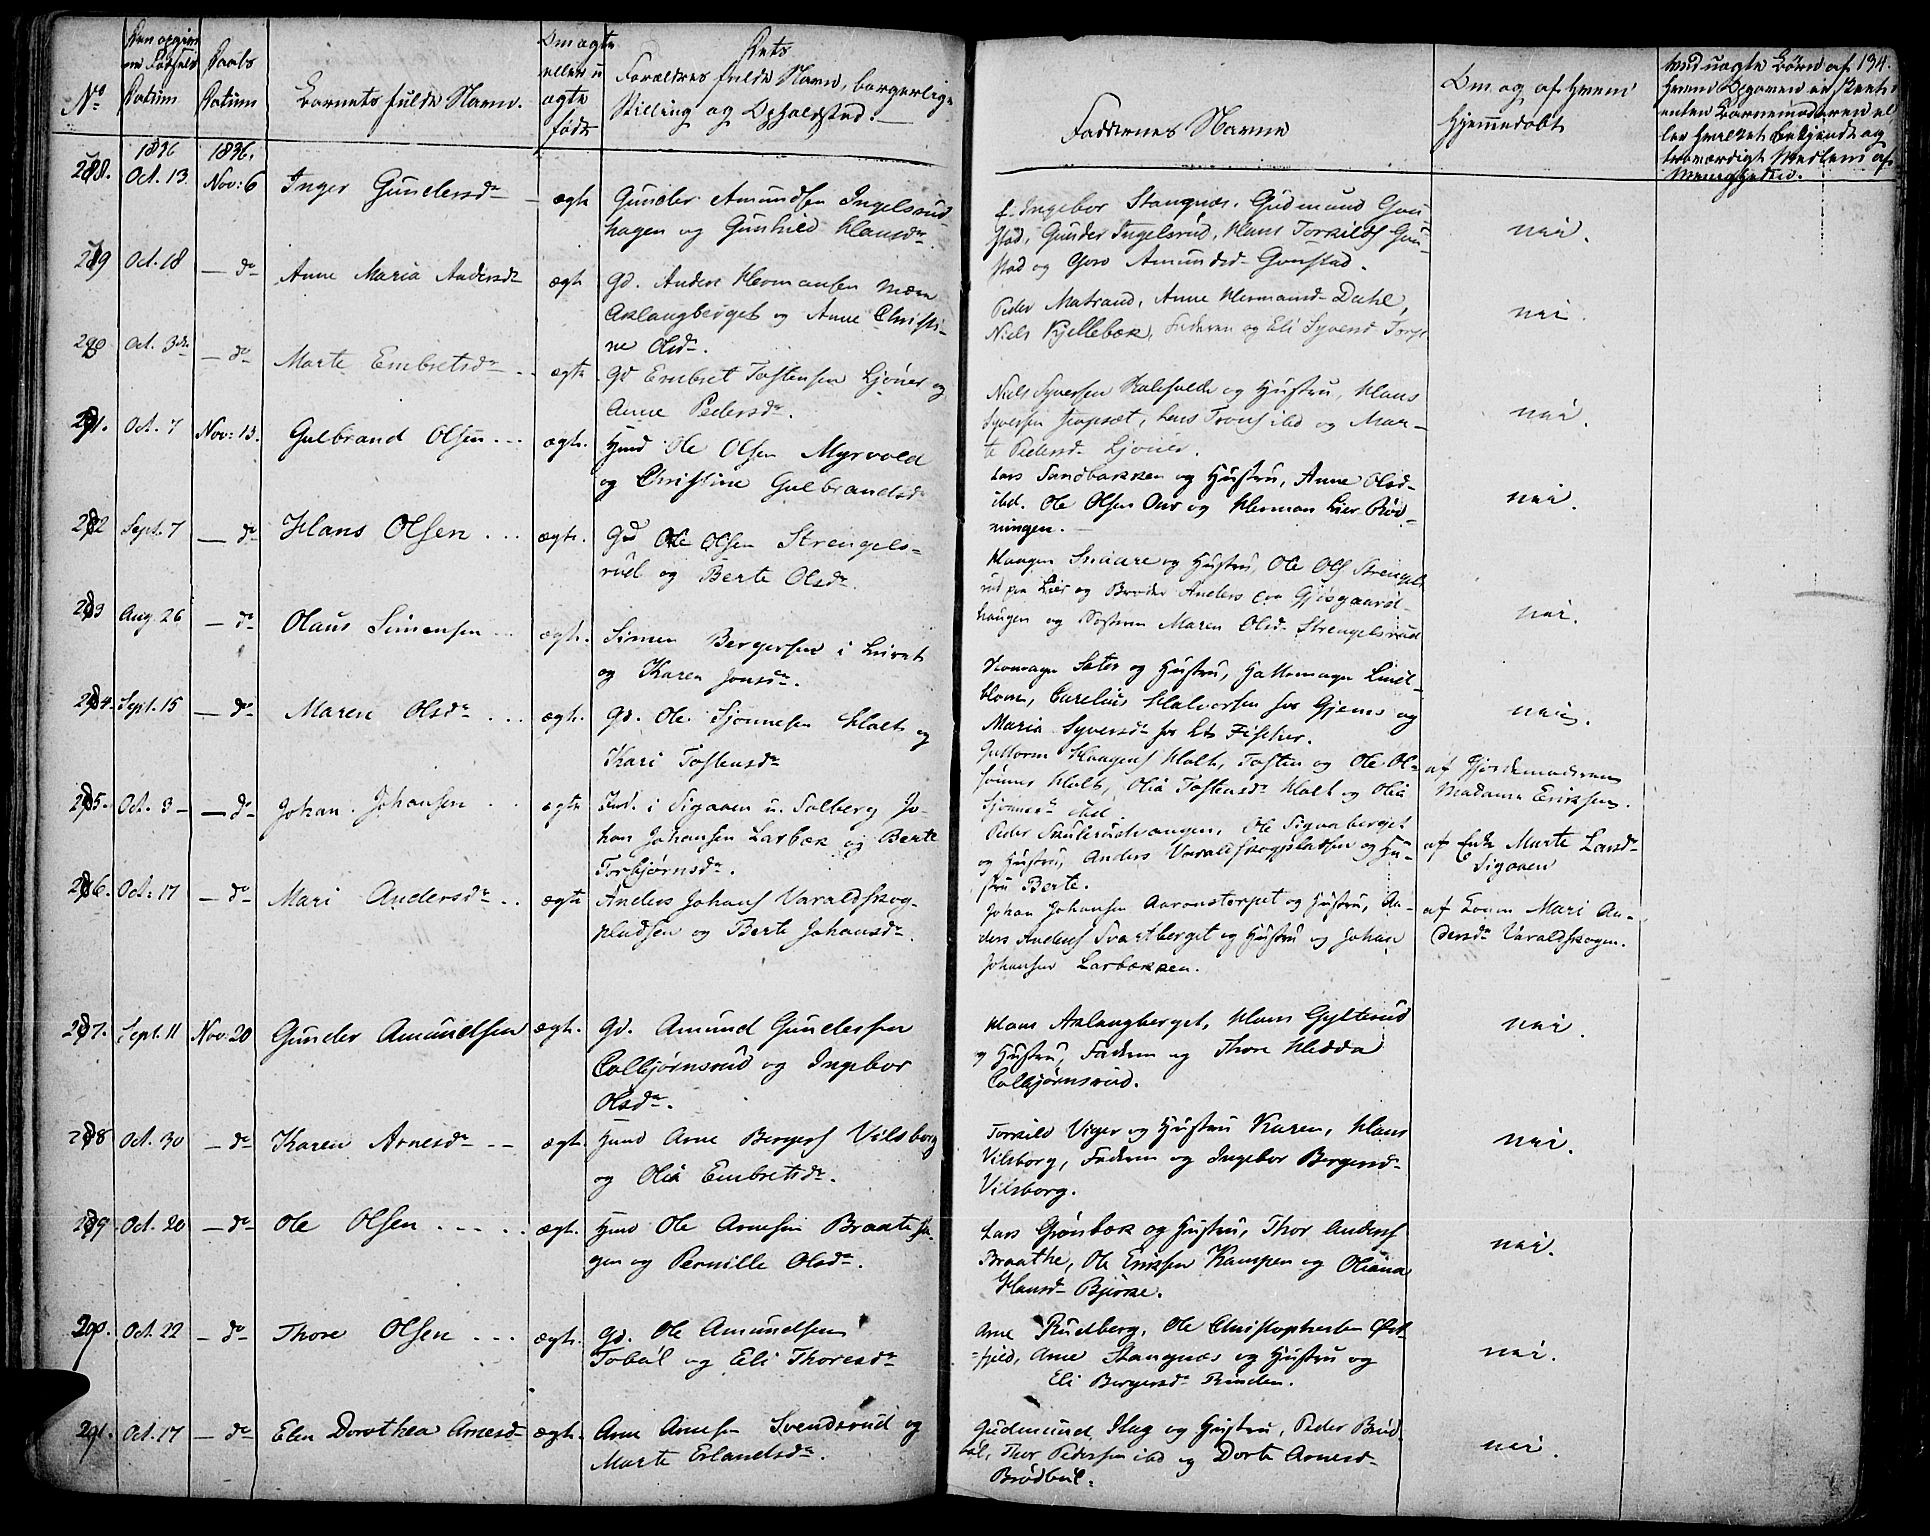 No
Datum
Daabs
Datum
Barnets fulde Navn.
Om ægte
eller u
ægte
født
Dets
Forældres fulde Navn, borgerlige
Stilling og Opholdssted.
Faddernes Navne
Om og af hvem
hjemmedøbt
134.
1836
1836.
Oct. 13.
Nov: 6
Inger Gundersdr
ægte
Gunder Amundsen Ingelsrud
hagen og Gunhild Hansdr.
Ingebor Stangnæs, Gudmund Gon-
stad, Gunder Ingelsrud, Hans Torkilds Gon-
stad og Goro Amundsd. Gonstad.
nei.
Oct. 18
do
Anne Maria Andersdr
ægte
Gd. Anders Hermansen
Aslangberget og Anne Christi-
ne Olsdr.
Peder Matrand, Anne Hermansd. Dahl,
Niels Kjellebæk, Faderen og Eli Syversd.
nei.
do
Marte Embretsdr
ægte
Gd Embret Tostensen Ljøner og
Anne Pedersdr.
Niels Syversen og Hustru, Hans
Syversen og Mar-
te Pedersd. Ljøner.
nei.
Oct. 7
Nov: 13.
Gulbrand Olsen
ægte.
Hmd Ole Olsen Myrvold
og Christine Gulbrandsdr
Lars Sandbakken og Hustru, Anne Olsd.
ibd. Ole Olsen Aur og Herman Lier Rød-
ningen.
nei.
Sept. 7
do
Hans Olsen
ægte.
Gd Ole Olsen Strengels-
rud og Berte Olsdr.
Haagen Snaare og Hustru, Ole Ols Strengels
rud, Lier og Broder Anders Gjøsgaard-
haugen og Søsteren Maren Olsd. Strengelsrud
nei.
Aug. 26
do
Olaus Simensen
ægte.
Simen Bergersen
og Karen Jonsdr.
Sæter og Hustru, Lind-
blom, Carelius Halvorsen hos Gjems og
Maria Syversdr hos Lt Fischer.
nei.
Sept. 15
do
Maren Olsdr
ægte.
Gd. Ole Sjønnesen Holt og
Kari Tostensdr
Guttorm Haagens Holt, Tosten og Ole Ol-
sønner Holt, Olia Tostensdr Holt og Olia
Sjønnesdr ibd.
af Gjordemoderen
Madame Eriksen.
Oct. 3
do
Johan Johansen
ægte
Ind. i Sigaaen u. Solberg Jo-
han Johansen Larbæk og Berte
Torbjørnsdr.
Peder Skulerudvangen, Ole Signeberget
og Hustru, Anders Varaldskogpladsen og Hu-
stru Berte.
af Enke Marte Larsdr
Sigaaen
Oct. 17
do
Mari Andersdr
ægte
Anders Johans Varaldskog-
pladsen og Berte Johansdr.
Johan Johansen Aaronstorpet og Hustru, An-
ders Anders Svartberget og Hustru og Johan
Johansen Larbækken.
af Konen Mari An-
dersdr Varaldskogen.
Sept. 11
Nov: 20
Gunder Amundsen
ægte.
Gd. Amund Gundersen
Colbjørnsrud og Ingebor
Olsdr.
Hans Aslangberget, Hans Gylterud
og Hustru, Faderen og Thore Hedda
Colbjørnsrud.
nei.
Oct. 30
do
Karen Arnesdr
ægte.
Hmd Arne Bergers Vilsborg
og Olia Embretsdr.
Torkild Viger og Hustru Karen, Hans
Vilsborg, Faderen og Ingebor Bergersd.
Vilsborg.
nei.
Oct. 20
do
Ole Olsen
ægte.
Hmd Ole Arnesen Braateha-
gen og Pernille Olsdr.
Lars Grønbæk og Hustru, Thor Anders
Braathe, Ole Eriksen Kampen og Oliana
Hansd. Bjørke.
nei.
290.
Oct. 22
do
Thore Olsen
ægte.
Gd. Ole Amundsen
Tobøl og Eli Thoresdr
Arne Rudberg, Ole Christophersen Øst-
fjeld, Arne Stangnæs og Hustru og
Eli Bergersdr
nei.
291.
Oct. 17
do
Elen Dorthea Arnesdr
ægte.
Arne Arnesen Svendsrud og
Marte Erlandsdr.
Gudmund Hag og Hustru, Peder Brød-
bøl, Thor Pedersen ibd og Dorte Arnesd.
Brødbøl.
nei.